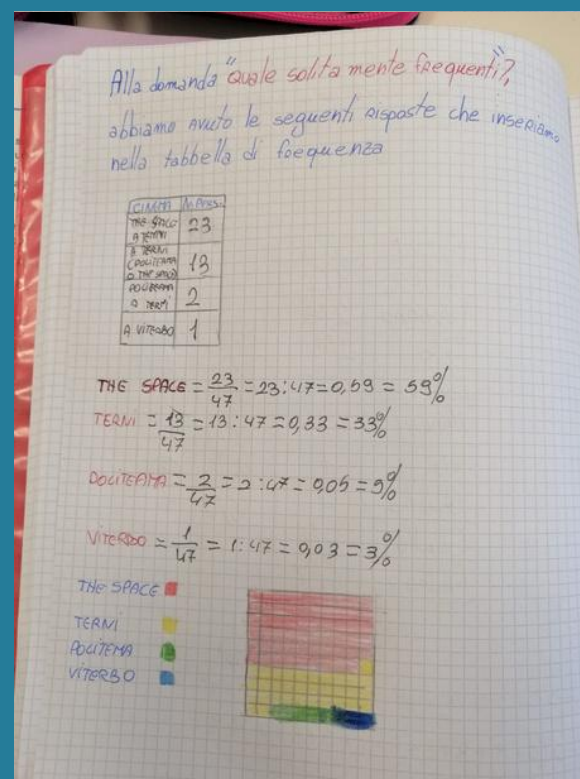 Alla domanda "quale solita mente frequenti?",
abbiamo avuto le seguenti risposte che inseriamo
nella tabbella di frequenza
CINEMA N. PERS.
THE SPACE A TERNI 23
A TERNI (POLITEAMA O THE SPACE) 13
POLITEAMA A TERNI 2
A VITERBO 1
THE SPACE = 23/47 = 23:47 = 0,59 = 59%
TERNI = 13/47 = 13:47 = 0,33 = 33%
POLITEAMA = 2/47 = 2:47 = 0,05 = 5%
VITERBO = 1/47 = 1:47 = 0,03 = 3%
THE SPACE
TERNI
POLITEMA
VITERBO